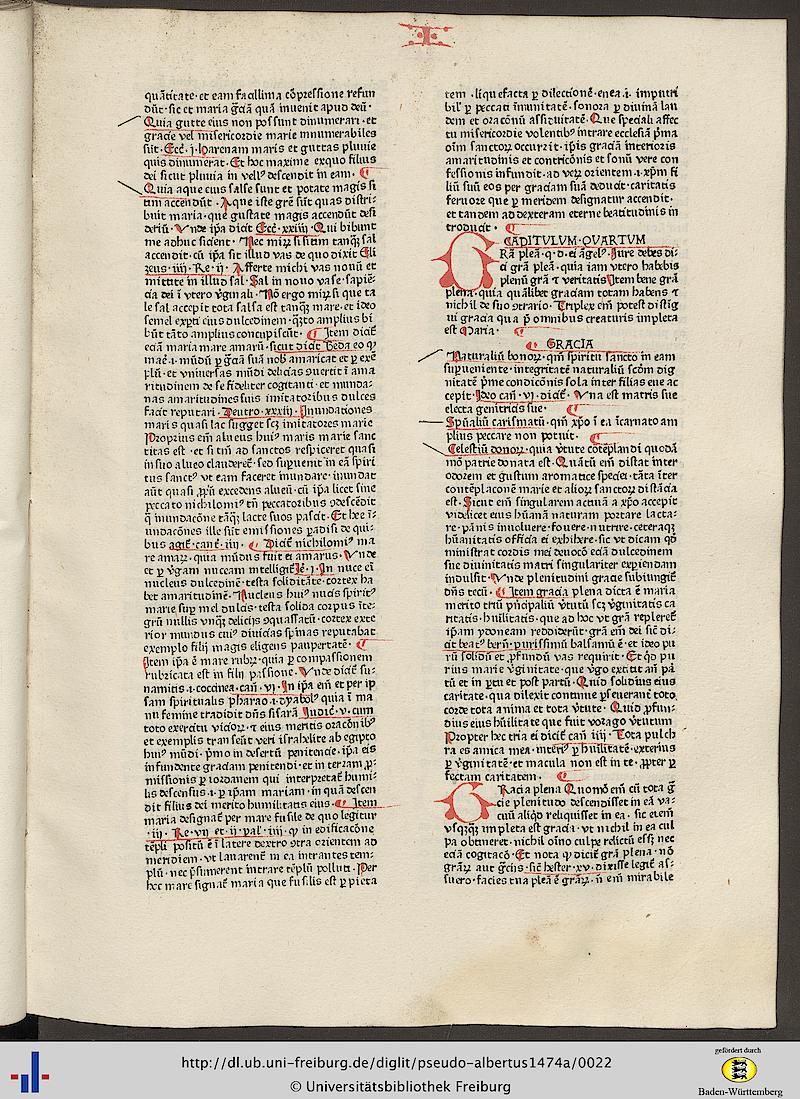 I
quātitate· et eam facillima cōpressione refun
dūt· sic et maria gr̄ciā quā inuenit apud deū·
Quia gutte eius non possunt dinumerari· et
gracie vel misericordie marie innumerabiles
sūt· Ecc̄· j· harenam maris et guttas pluuie
quis dinumerat· Et hoc maxime exquo filius
dei sicut pluuia in vell⁹ descendit in eam·
Quia aque eius salse sunt et potate magis si
tim accendūt· Aque iste grē sūt quas distri-
buit maria· que gustate magis accendūt desi
deriū· Vnde ip̄a dicit Ecc̄· xxiiij· Qui bibunt
me adhuc sicient· Nec miꝝ si sitim tanqꝫ sal
accendit· cū ip̄a sit illud vas de quo dixit Eli
zeus· iiij· Re· ij· Afferte michi vas nouū et
mittite in illud sal· Sal in nouo vase· sapiē-
cia dei ī vtero v̄ginali· Nō ergo miꝝ si que ta
le sal accepit tota salsa est tanqꝫ mare· et ideo
semel expti eius dulcedinem· q̄sto amplius bi
būt tāto amplius concupiscūt· Item dicit̄
eciā maria mare amarū· sicut dicit Beda eo ꝙ
mare· i· mūdū ꝑ gr̄ciam suā nob̄ amaricat et ꝑ exē
plū· et vniuersas mūdi delicias ꝟertit ī ama
ritudinem de se fideliter cogitanti· et munda-
nas amaritudines suis imitatoribus dulces
facit reputari· Deutro· xxxiij· Inundationes
maris quasi lac sugget scꝫ imitatores marie
Proprius em̄ alueus hui⁹ maris marie sanc
titas est· et si tm̄ ad sanctos respiceret quasi
in suo alueo clauderet̄· sed supuenit in eā spiri
tus sanct⁹ vt eam faceret inundare· inundat
aūt quasi ꝓp̄ū excedens alueū· cū ip̄a licet sine
peccato nichilomi⁹ tn̄ peccatoribus ꝯdescēdit
q̄ inundacōne tāqꝫ lacte suos pascit· Et hec ī-
undacōnes ille sūt emissiones ꝑadisi de qui-
bus agit̄· cant̄· iiij· Dicit̄ nichilomi⁹ ma
re amaꝝ· quia mūdus fuit ei amarus· Vnde
et ꝑ v̄gam nuceam intelligit̄ Ie̅· j· In nuce ei
nucleus dulcedine· testa soliditate· cortex ha
bet amaritudine· Nucleus hui⁹ nucis spirit⁹
marie suꝑ mel dulcis· testa solida corpus īte-
grū nullis vnqꝫ delicijs ꝯquassatū· cortex exte
rior mundus cui⁹ diuicias spinas reputabat
exemplo filij magis eligens paupertatē·
Item ip̄a ē mare rubꝝ· quia ꝑ compassionem
rubricata est in filij passione· Vnde dicit̄ su-
namitis· i· coccinea· can̄· vj· In ip̄a em̄ et per ip
sam spiritualis pharao· i· dyabol⁹ quia ī ma
nu femine tradidit dn̄s sisarā Iudic̄· v· cum
toto exercitu vicioꝝ· ⁊ eius meritis oracōnib⁹
et exemplis transeūt veri israhelite ab egipto
hui⁹ mūdi· pͥmo in desertū penitencie· ip̄a eis
infundente graciam penitendi· et in terram ꝓ-
missionis ꝑ iordanem qui interpretat̄ humi-
lis descensus· i· ꝑ ip̄am mariam· in quā descen
dit filius dei merito humilitatis eius· Item
maria designat̄ per mare fusile de quo legitur
·iij· Re· vij et· ij· pal· iiij· ꝙ in edificacōne
tēpli positū ē ī latere dextro ꝯtra orientem ad
meridiem· vt lauarent̄ in ea intrantes tem-
plū· nec p̄sumerent intrare tēplū polluti· Per
hoc mare signat̄ maria que fusilis est ꝑ pieta
tem· liquefacta ꝑ dilectionē· enea· i· imputri
bil̄ ꝑ peccati īmunitatē· sonora ꝑ diuinā lau
dem et oracōnū assiduitatē· Que speciali affec
tu misericordie volentib⁹ intrare ecclesiā pͥma
oīm sanctoꝝ occurrit· ip̄is graciā interioris
amaritudinis et contricōnis et sonū vere con
fessionis infundit· ad veꝝ orientem· i· xp̄m fi
liū suū eos per graciam suā deducit· caritatis
feruore que ꝑ meridem designatur accendit·
et tandem ad dexteram eterne beatitudinis in
troducit·
CAPITVLVM· QVARTVM
GRā plen̄a· q· d· ei āgel⁹· Iure debes di-
ci grā plen̄a· quia iam vtero habebis
plenū grā ⁊ veritatis Item bene grā
plena· quia qualibet graciam totam habens ⁊
nichil de suo orario· Triplex em̄ potest distīg
ui gracia qua p̄ omnibus creaturis impleta
est Maria·
GRACIA
Naturaliū bonoꝝ· qm̄ spiritu sancto in eam
supueniente· integritatē naturaliū scd̄m dig
nitatē pͥme condicōnis sola inter filias eue ac
cepit· Ideo can̄· vj· dicit̄· Vna est matris sue
electa genitricis sue·
Spūaliū carismatū· qm̄ xp̄o ī ea īcarnato am
plius peccare non potuit·
Celestiū donoꝝ· quia v̄tute cōtēplandi quodā
mō patrie donata est· Quātū em̄ distat inter
odorem et gustum aromatice speciei· tāta īter
contēplaconē marie et alioꝝ sanctoꝝ distācia
est· Sicut em̄ singularem actum a xp̄o accepit
videlicet eius hūanā naturam portare lacta-
re· pānis inuoluere· fouere· nutrire· ceteraqꝫ
hūanitatis officia ei exhibere· sic vt dicam qd̄
ministrat cordis mei deuocō eciā dulcedinem
sue diuinitatis matri singulariter expiendam
indulsit· Vnde plenitudini gracie subiungit̄
dn̄s tecū· Item gracia plena dicta ē maria
merito triū pͥncipaliū v̄tutū scꝫ v̄ginitatis ca
ritatis· hūilitatis· que ad hoc vt grā replere̅t
ip̄am ydoneam reddiderūt· grā em̄ dei sic̄ di-
cit beat⁹ bern̄· purissimū balsamū ē· et ideo pu
rū solidū et ꝓfundū vas requirit· Et qd̄ pu
rius marie v̄ginitate· que v̄go extitit an̄ pā
tū et in ꝑtu et post partū· Quid solidius eius
caritate· qua dilexit continue ꝑseuerant̄ toto
corde tota anima et tota v̄tute· Quid ꝓfun-
dius eius hūilitate que fuit vorago v̄tutum
Propter hec tria ei dicit̄ can̄ iiij· Tota pulch
ra es amica mea· interi⁹ ꝑ hūilitatē· exterius
ꝑ v̄ginitatē· et macula non est in te· ꝓpter ꝑ
fectam caritatem·
GRacia plena Quomō em̄ cū tota gͣ
cie plenitudo descendisset in eā va-
cuū aliqd̄ reliquisset in ea· sic etem̄
vsqꝫqꝫ impleta est gracia· vt nichil in ea cul
pa obtineret· nichil oīno culpe relictū essꝫ nec
eciā cogitacō· Et nota ꝙ dicit̄ grā plena· nō
grāꝝ aut gr̄cijs· sic̄ hester· xv· dixisse legit̄ as-
suero· facies tua plen̄a ē grāꝝ· ⁊ em̄ mirabile
http://dl.ub.uni-freiburg.de/diglit/pseudo-albertus1474a/0022
© Universitätsbibliothek Freiburg
gefördert durch
Baden-Württemberg